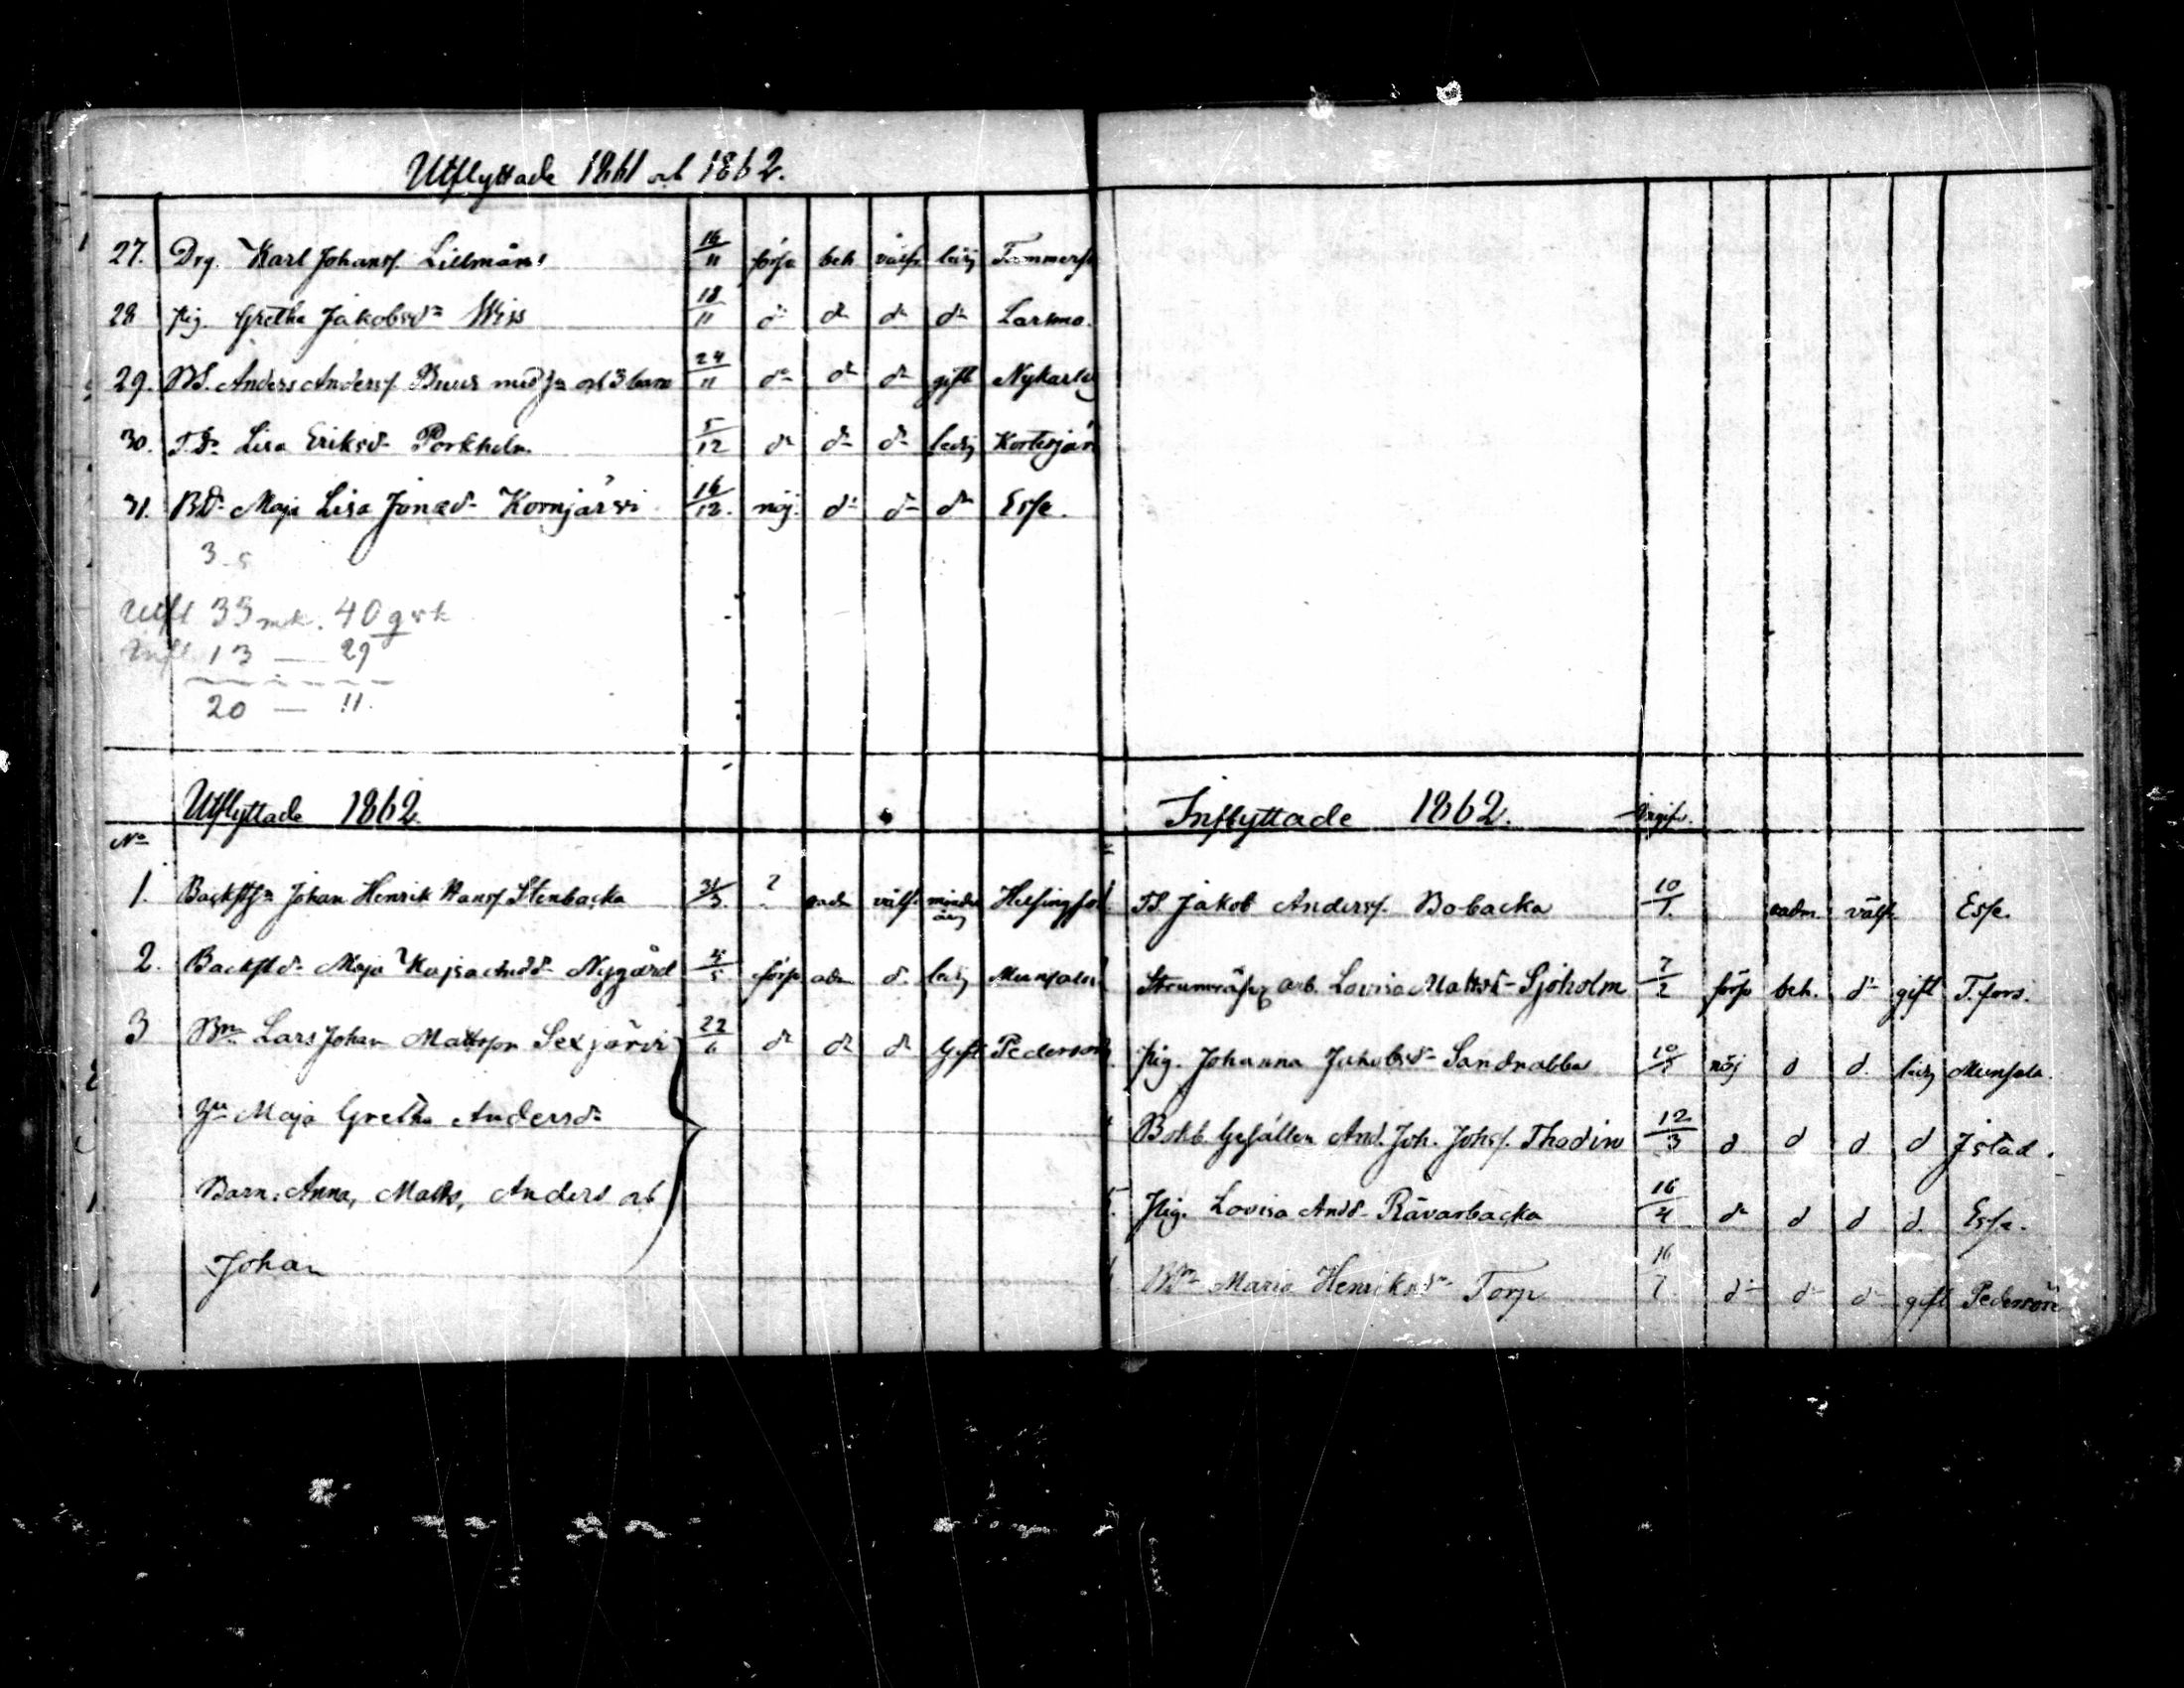 Utflyttade 1861 och 1862.
27. Drg. Karl Johansf. Lillmåns 16/11 förfs beh välfr ledig Tammerf
28 pig. Gretha Jakobsdr Wiss 18/11 do do do do Larsmo.
29. Anders Andersf. Buus med hu och 3 barn 24/11 do do do gift Nykarleb
30. T.dr Lisa Eriksdr Porkholm 5/12 do do do ledig Kortesjär
31. Bdr Maja Lisa Jonasdr Kornjärvi 16/12. nöj. do do do Esse.
3
Utfl 33 mk. 40 
Infl. 13 — 29
20 — 11.
Utflyttade 1862.
No
1. Backstsn Johan Henrik Hansf. Stenbacka 31/3. ? oadm välf. minder årig Helsingfor
2. Backstdr Maja Kajsa Andsdr Nygård 4/5 förfs adm do ledig Munsala
3 Bn Lars Johan Mattsson Sexjärvi 22/6 do do do Gift Pedersör
hu Maja Gretha Andersdr
Barn: Anna, Matts, Anders och
Johan
Inflyttade 1862.
TS. Jakob Andersf. Bobacka 10/1. oadm. välf. Esse.
arb. Lovisa Mattsdr Sjöholm 7/2 förfs beh. do gift T.fors.
pig. Johanna Jakobsdr Sandnabba 10/3 nöj d d. ledig Munsala.
Bokb. Gesällen And. Joh. Johsf. Thodin 12/3 d d d d Jstad.
5. Pig. Lovisa Andsdr Rävarbacka 16/4 do d d d Esse.
Maria Henriksdr Torp 16/7. do do do gift Pedersöre